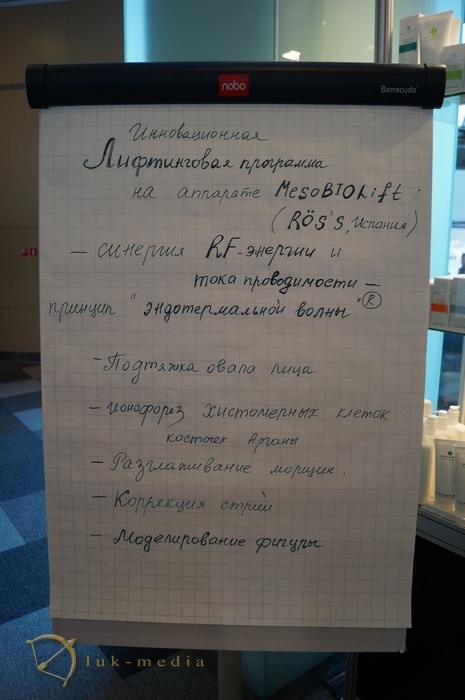 nobo
Barracuda
Инновационная
Лифтинговая программа
на аппарате MesoBIOLift :
(RÖS'S, Испания)
— синергия RF-энергии и
тока проводимости —
принцип "эндотермальной волны" ®
— Подтяжка овала лица
— ионофорез хистомерных клеток
косточек Арганы
— Разглаживание морщин.
— Коррекция стрий
— Моделирование фигуры
luk-media